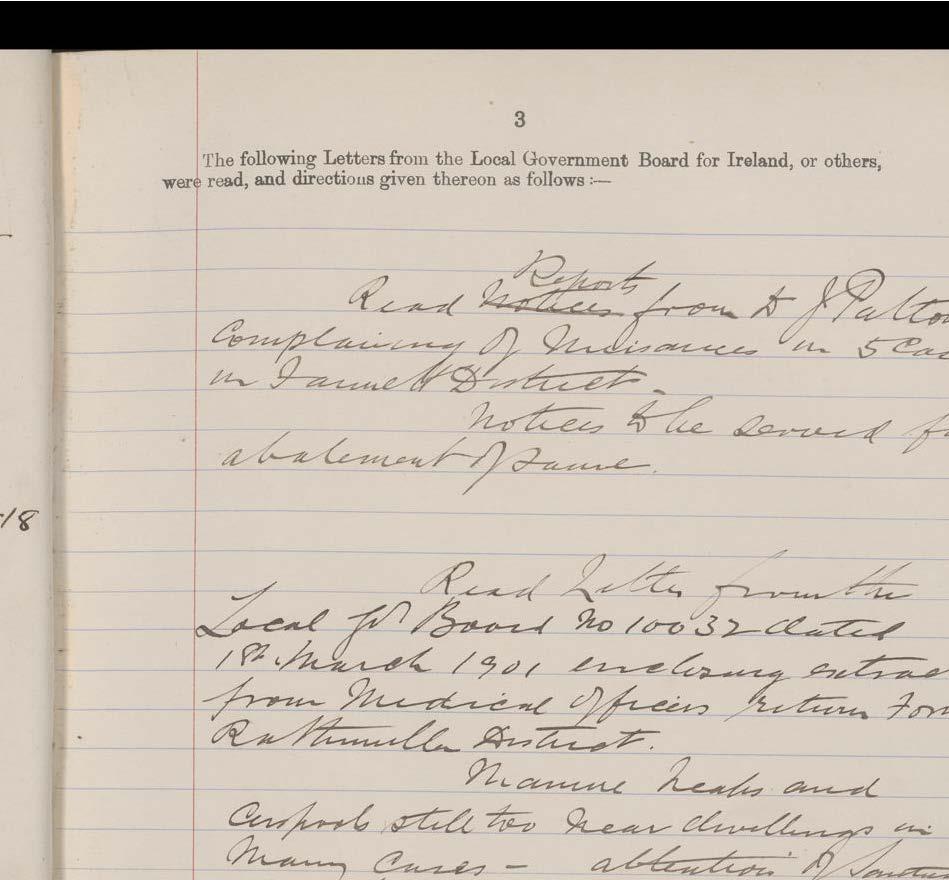 3
The following Letters from the Local Government Board for Ireland, or others,
were read, and directions given thereon as follows :—
Reports
Read Notices from Dr J Patton
Complaining of Nuisances in 5 Cas
in Fannett District.
Notices to be served f
abatement of same.
18
Read Letter from the
Local Gd Board No 10032 dated
18th March 1901 enclosing extrac
from Medical Officers return For
Rathmullen District.
Manure heaps and
Cesspools still too near dwellings in
Many Cases - attention of Sanitar